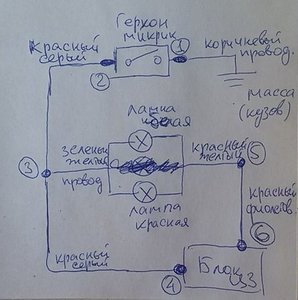 Геркон
микрик
Красный
серый
1
коричневый
провод.
2
масса
(кузов)
лампа
белая
зеленый
желтый
провод
3
красный
желтый
5
лампа
красная
красный
фиолетов.
6
красный
серый
4
Блок
ЗЗ